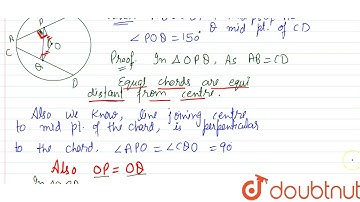 mid pt. of CD
∠POQ = 150°
Proof. In △OPQ, As AB = CD
Equal chords are equi
distant from centre.
Also we know, line joining centre
to mid pt. of the chord, is perpendicular
to the chord, ∠APO = ∠CQO = 90
Also OP = OQ
P
O
A
C
Q
D
doubtnut